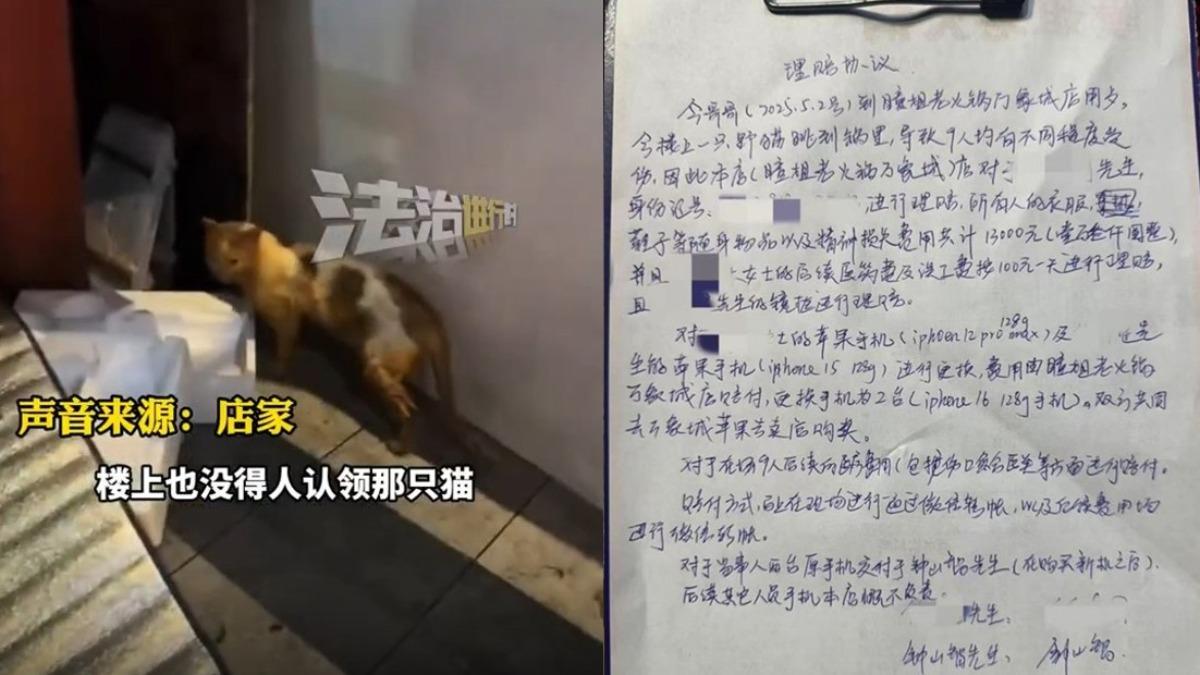 法治进行时
声音来源：店家
楼上也没得人认领那只猫
理赔协议
今哥哥(2025.5.2号)到瞳姐老火锅万象城店用夕，
今楼上一只野猫跳到锅里，导致9人均有不同程度受
伤，因此本店(瞳姐老火锅万象城)店对 先生，
身份证号、 ，进行理赔，所有人的衣服，
鞋子等随身物品以及精神损失费用共计13000元(壹万叁仟圆整)，
并且 女士的后续医药费及误工费按100元一天进行理赔，
且 先生的镜片进行理赔。
对 士的苹果手机(iphoen 12 pro max 128g)及 先
生的苹果手机(iphone 15 128g)进行更换，费用由瞳姐老火锅
万象城店赔付，更换手机为2台(iphone 16 128g手机)。双方共同
去万象城苹果专卖店购买。
对于在场9人后续 费用(包括伤口 等方面进行赔付。
赔付方式，在现场进行通过微信转帐，以及后续费用均
进行微信转帐。
对于当事人两台原手机交付于钟山智先生(在购买新机之后)。
后续其它人员手机本店概不负责。
先生、
钟山智先生、 钟山智